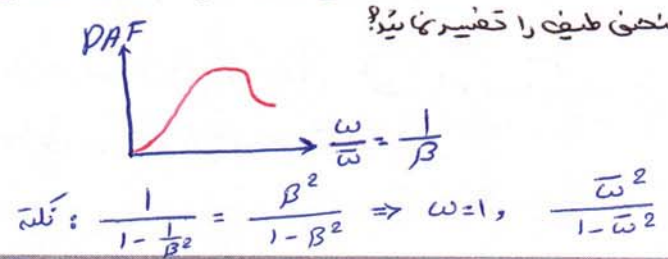 منحنی طیف را تفسیر نمائید؟
DAF
ω/ω̅ = 1/β
نکته: 1/(1 - 1/β²) = β²/(1 - β²) ⇒ ω=1, ω̅²/(1 - ω̅²)